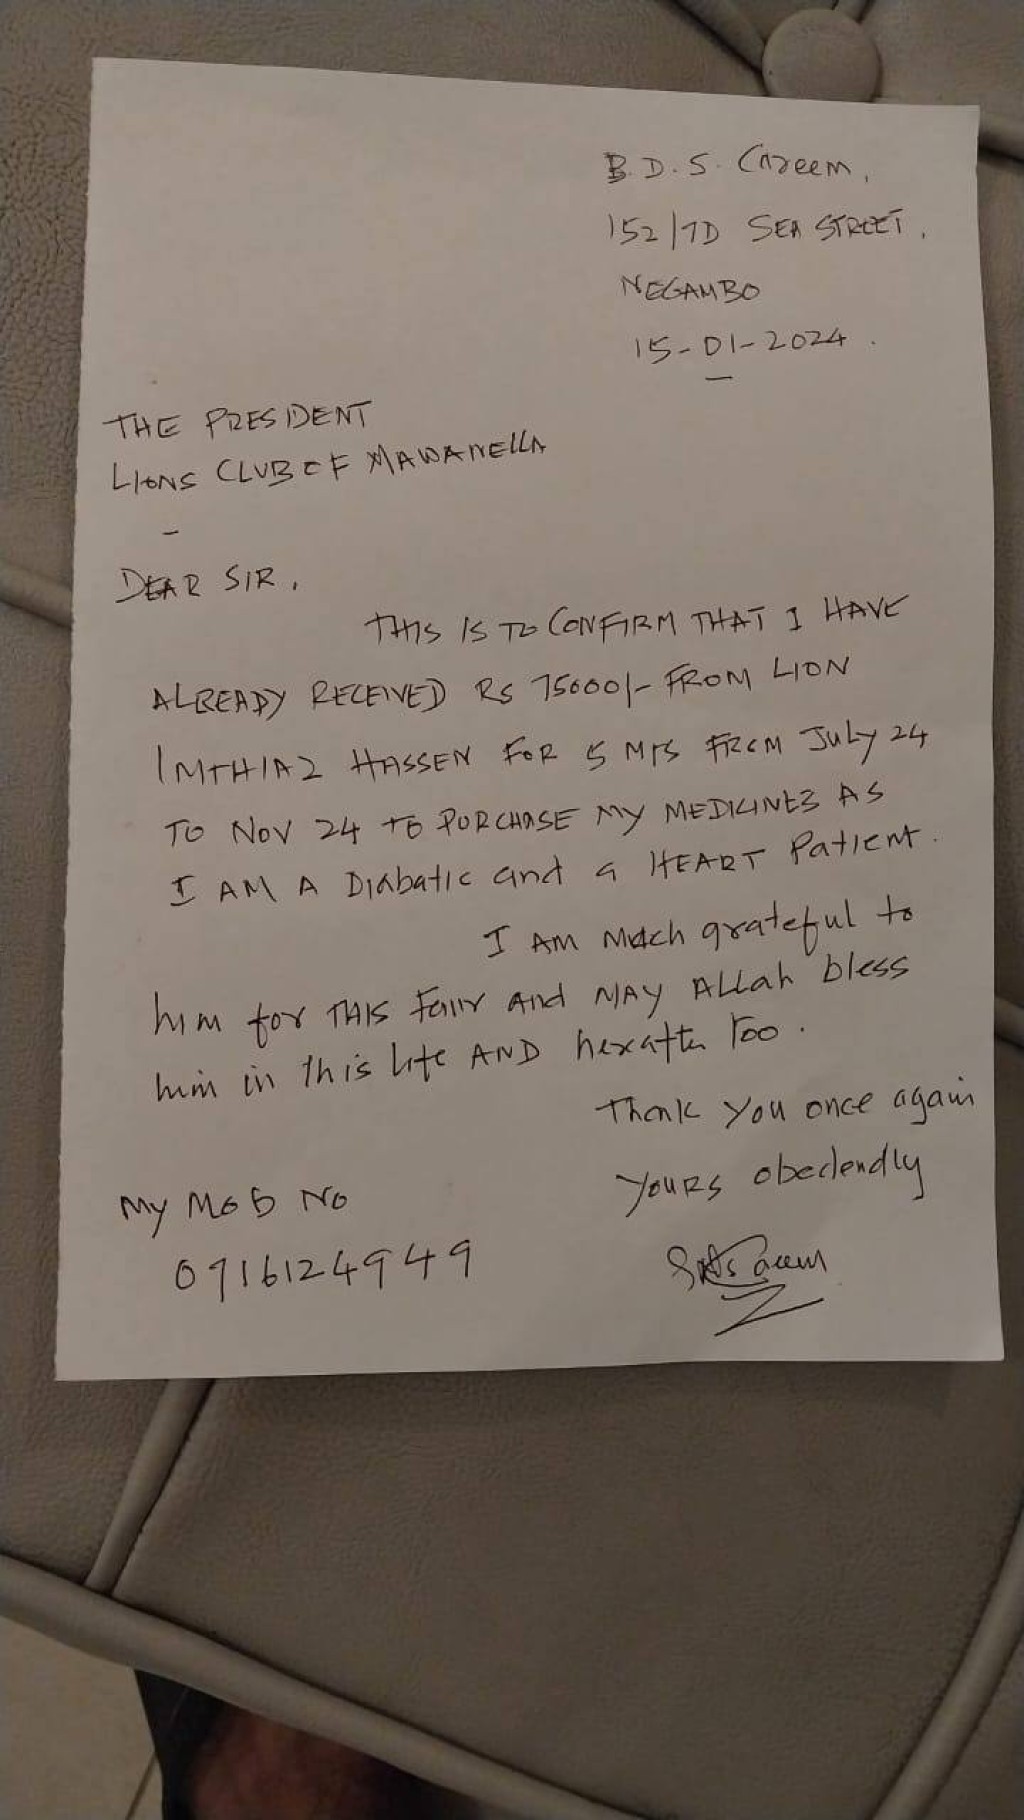 B.D.S. Careem,
152/7D SEA STREET,
NEGAMBO
15-01-2024.
THE PRESIDENT
LIONS CLUB OF MAWANELLA
DEAR SIR,
THIS IS TO CONFIRM THAT I HAVE
ALREADY RECEIVED RS 75000/- FROM LION
IMTHIAZ HASSEN FOR 5 MTS FROM JULY 24
TO NOV 24 TO PURCHASE MY MEDICINES AS
I AM A Diabatic and a HEART Patient.
I AM Much grateful to
him for THIS And MAY ALLah bless
him in this life AND hereafter Too.
Thank you once again
YOURS obedendly
MY MOB NO
0916124949